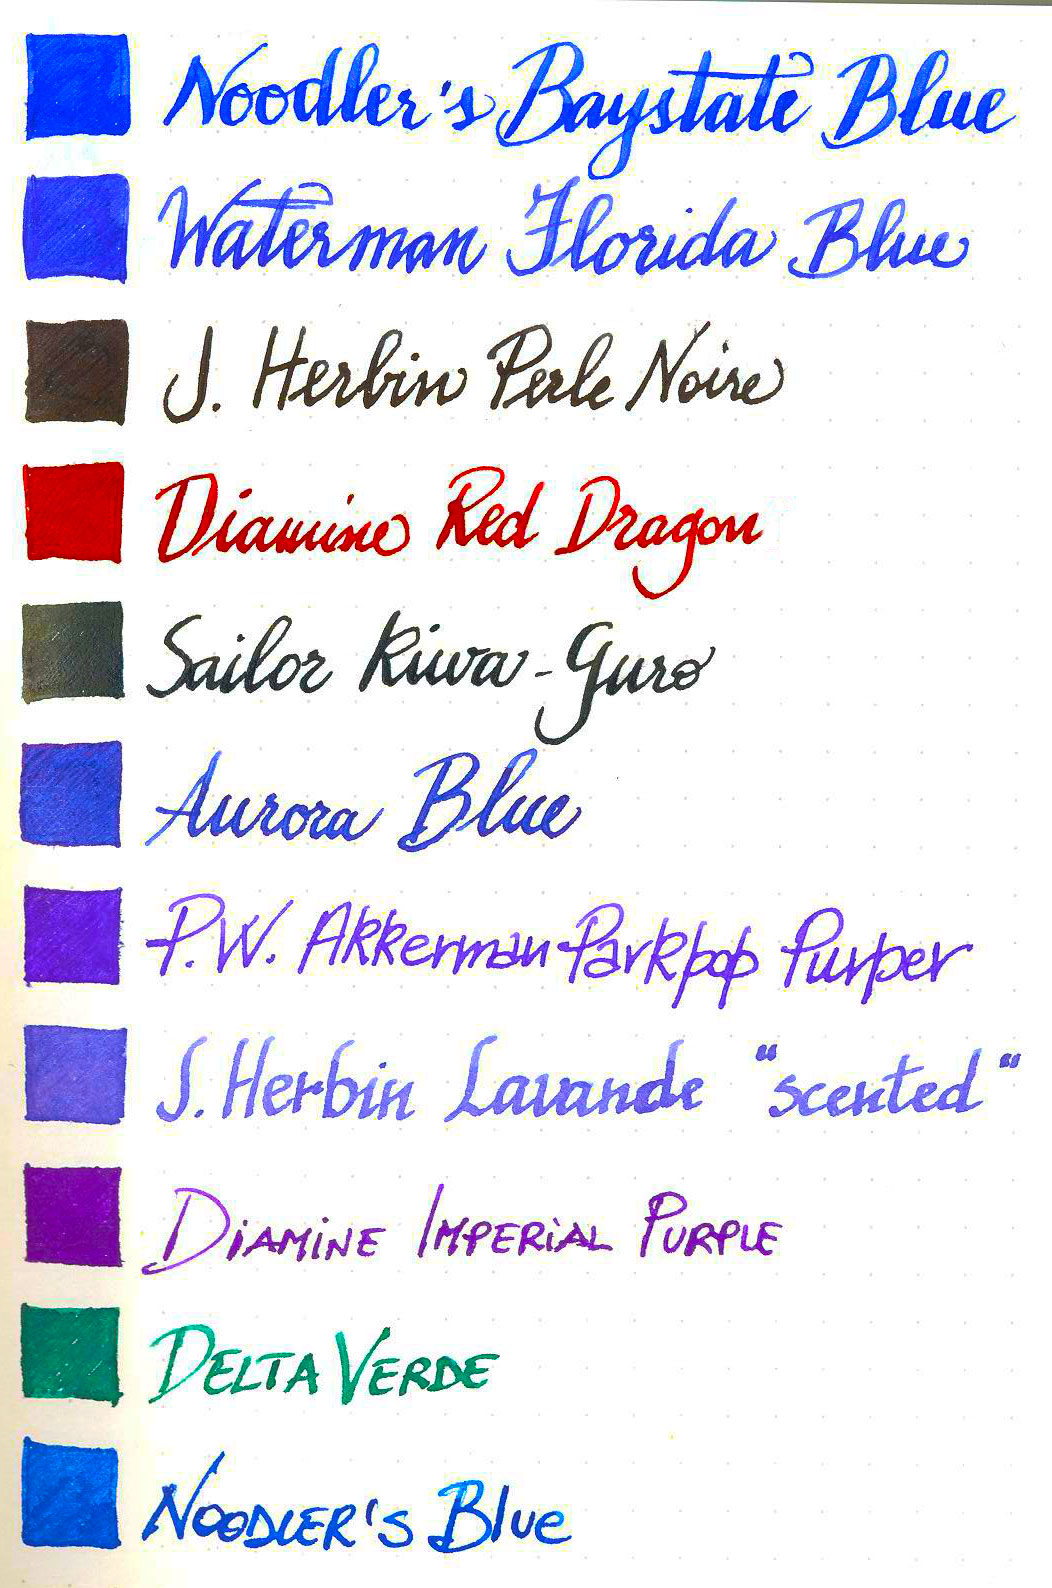 Noodler's Baystate Blue
Waterman Florida Blue
J. Herbin Perle Noire
Diamine Red Dragon
Sailor Kiwa-Guro
Aurora Blue
P.W. Akkerman Parkpop Purper
J. Herbin Lavande "scented"
DIAMINE IMPERIAL PURPLE
DELTA VERDE
NOODLER'S Blue